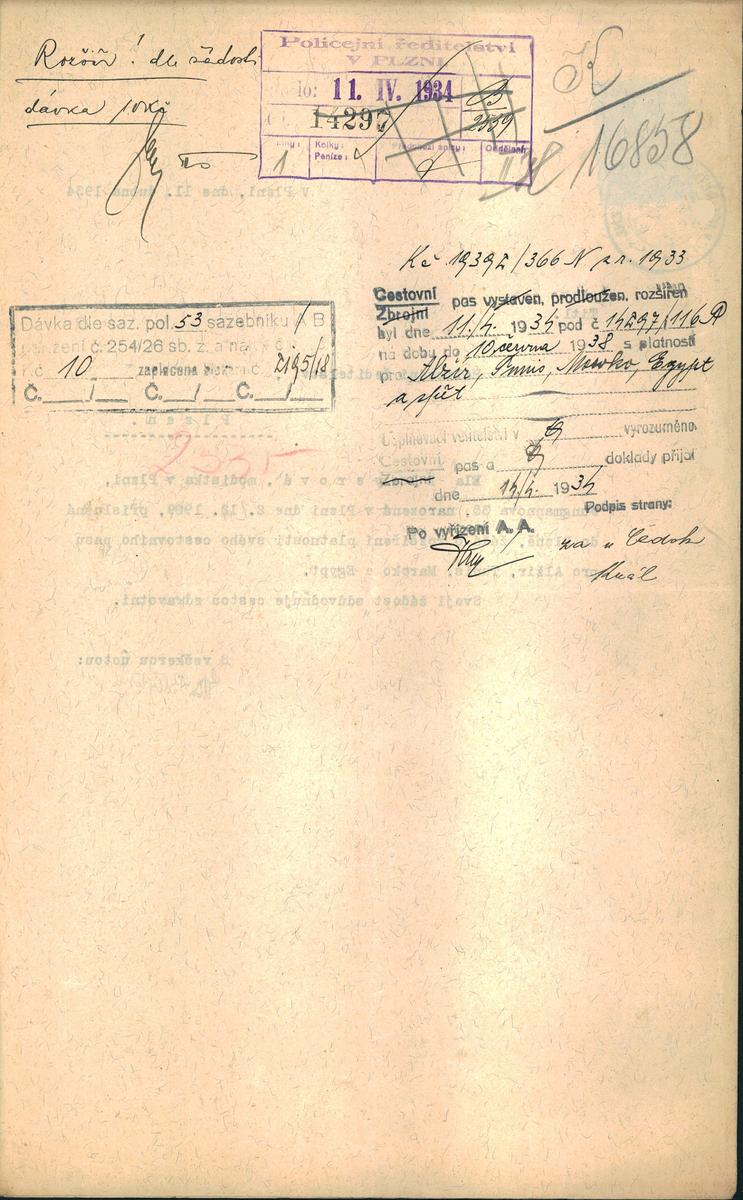 Rozšiř! dle žádosti
dávka 10 Kč
Policejní ředitelství
V PLZNI
11. IV. 1934
14297
B
2459
Kolky:
Peníze:
Předchozí spisy:
1
K
16858
V Plzni, dne 11. dubna 1934
Kč 19392/366 N z r. 1933
Cestovní
Zbrojní
pas vystaven, prodloužen, rozšířen
byl dne 11./4. 1934 pod č 14297/116 A
na dobu do 10 června 1938 s platností
pro Alžír, Tunis, Maroko, Egypt
a zpět
Dávka dle saz. pol. 53 sazebníku A B
nařízení č. 254/26 sb. z. a nař.
Kč 10 zaplacena 2195/18
Č. __/__ Č. __/__ Č. __/__
vyrozuměno.
Cestovní
Zbrojní
pas a doklady přijal
dne 14/4. 1934
Podpis strany:
Po vyřízení A. A.
za "Čedok
Král
2335-
modistka v Plzni,
narozená v Plzni dne 2./12. 1909, příslušná
rozšíření platnosti svého cestovního pasu
pro Alžír, Maroko a Egypt.
Svoji žádost odůvodňuje cestou zdravotní.
S veškerou úctou: